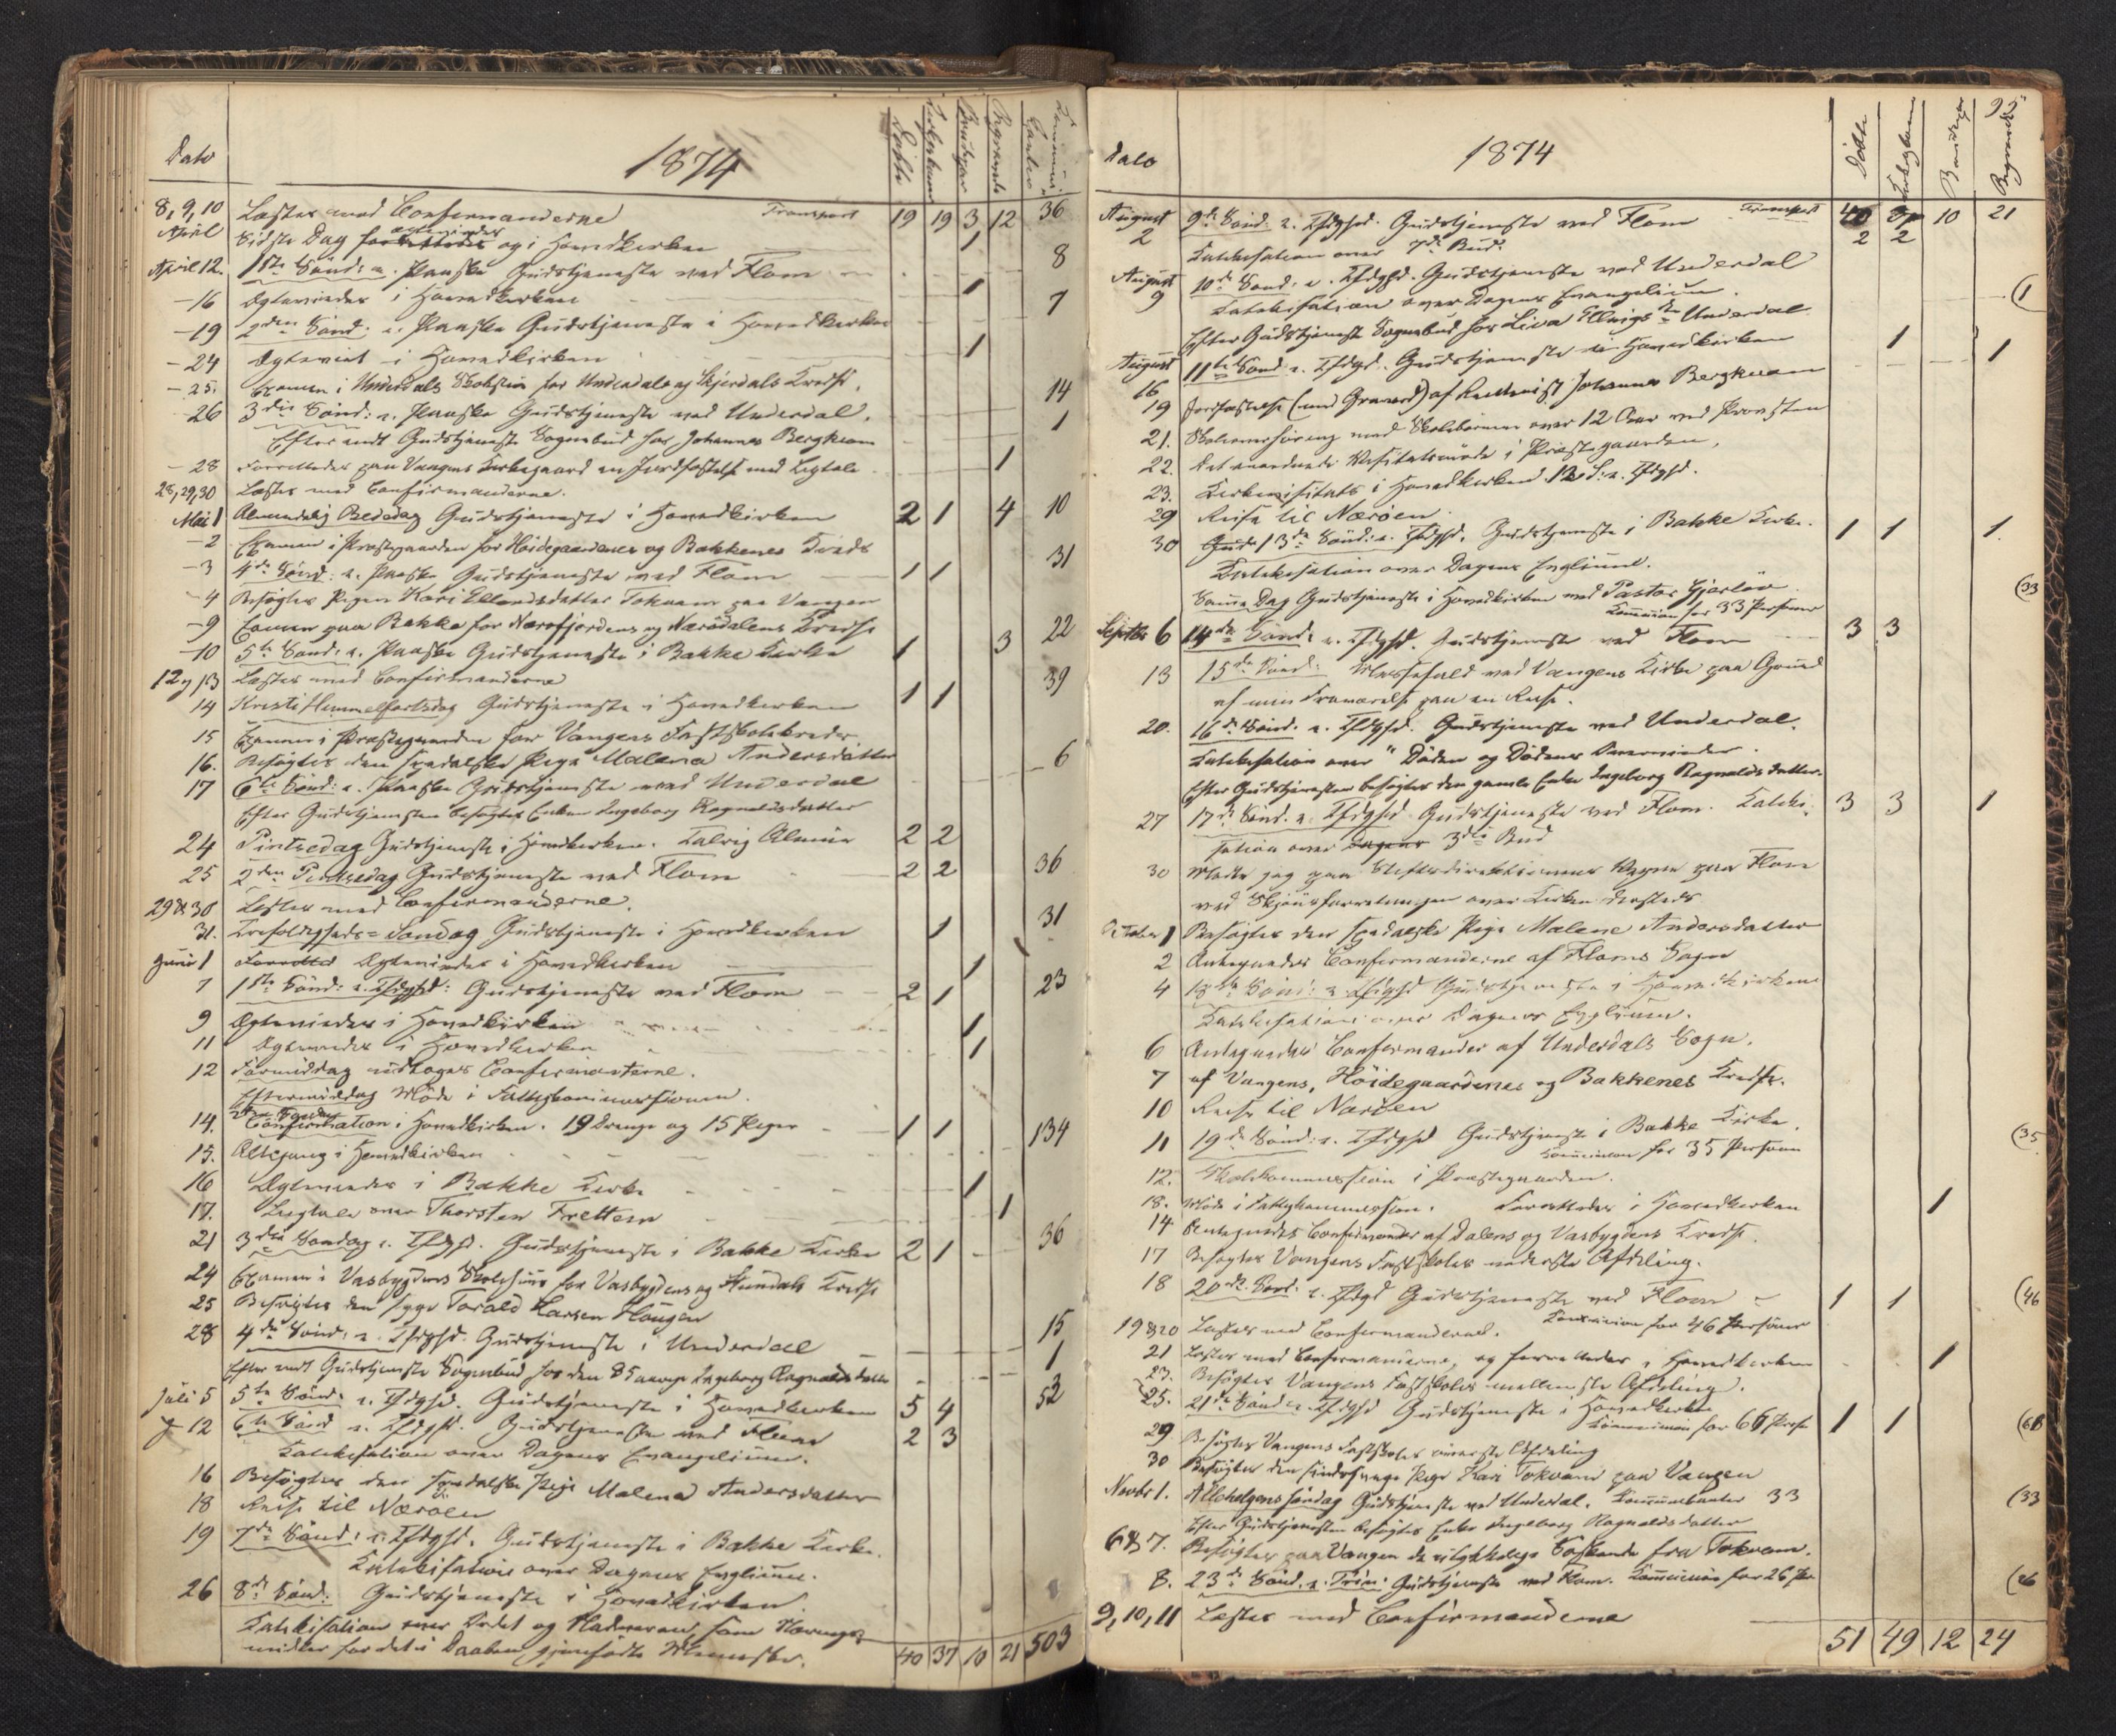 Dato
1874
Döbte
Kirkekoner
Brudepar
Begravede
8, 9, 10 Læstes med Confirmanderne Transport 19 19 3 12 36
April Sidste Dag ægteviedes og i Hovedkirken 1
April 12. 1ste Sönd: e. Paaske Gudstjeneste ved Flom 8
-16 Ægteviedes i Hovedkirken 1
-19 2den Sönd: e. Paaske Gudstjeneste i Hovedkirken 7
-24 Ægteviet i Hovedkirken 1
-25. Examen i Underdals Skolestue for Underdals og Skjerdals Kreds.
26 3die Sönd: e. Paaske Gudstjeneste ved Underdal. 14
Efter endt Gudstjeneste Sognebud hos Johannes Bergkvam 1
-28 Forrettedes paa Vangens Kirkegaard en Jordfæstelse med Ligtale 1
28, 29, 30 Læstes med Confirmanderne.
Mai 1 Almindelig Bededag Gudstjeneste i Hovedkirken 2 1 4 10
-2 Examen i Præstegaarden for Höidegaardenes og Bakkenes Kreds
-3 4de Sönd: e. Paaske Gudstjeneste ved Flom 1 1 31
-4 Besögtes Pigen Kari Ellendsdatter Tokvam paa Vangen
-9 Examen paa Bakke for Næröfjordens og Nærödalens Kreds
-10 5te Sönd: e. Paaske Gudstjeneste i Bakke Kirke 1 3 22
12 og 13 Læstes med Confirmanderne
14 Kristi Himmelfartsdag Gudstjeneste i Hovedkirken 1 1 39
15 Examen i Præstegaarden for Vangens Fastskolekreds
16. Besögtes den spedalske Pige Malena Andersdatter
17 6te Sönd: e. Paaske Gudstjeneste ved Underdal 6
Efter Gudstjenesten besögtes Enken Ingeborg Ragnaldsdatter
24 Pintsedag Gudstjeneste i Hovedkirken. 2 2
25 2den Pintsedag Gudstjeneste ved Flom 2 2 36
29 & 30 Læstes med Confirmanderne.
31. Trefoldigheds-Söndag Gudstjeneste i Hovedkirken 1 31
Juni 1 Forrettet Ægteviedes i Hovedkirken 1
7 1ste Sönd: e. Tfdghd: Gudstjeneste ved Flom 2 1 23
9 Ægteviedes i Hovedkirken 1
11 Ægteviedes i Hovedkirken 1
12 Formiddag udtoges Confirmanterne.
Eftermiddag Möde i Fattigkommissionen.
14. 2den Söndag Confirmation i Hovedkirken. 19 Drenge og 15 Piger 1 1
15. Altergang i Hovedkirken 134
16 Ægteviedes i Bakke Kirke 1
17. Ligtale over Thorsten Frettem 1
21 3die Söndag e. Tfdghd. Gudstjeneste i Bakke Kirke 2 1 36
24 Examen i Vasbygdens Skolehuus for Vasbygdens og Stundals Kreds
25 Besögtes den syge Torald Larsen Hougen
28 4de Sönd: e. Tfdghd. Gudstjeneste i Underdal 15
Efter endt Gudstjeneste Sognebud hos den 85 aarige Ingeborg Ragnaldsdatter 1
Juli 5 5te Sönd: e. Tfdghd. Gudstjeneste i Hovedkirken 5 4 52
12 6te Sönd e. Tfdghd. Gudstjeneste ved Flom 2 3
Katekisation over Dagens Evangelium.
16 Besögtes den spedalske Pige Malena Andersdatter
18 Reise til Næröen
19 7de Sönd: e. Tfdghd. Gudstjeneste i Bakke Kirke.
Katekisation over Dagens Evglium.
26 8de Sönd. Gudstjeneste i Hovedkirken
Katekisation over Ordet og Nadveren som Nærings-
midler for det i Daaben gjenfödte Menneske.
40 37 10 21 503
Dato
1874
95
Döbte
Kirkekoner
Brudepar
Begravede
August 2 9de Sönd: e. Tfdghd. Gudstjeneste ved Flom Transport 40 37 10 21
Katekisation over 7de Bud. 2 2
August 9 10de Sönd: e. Tfdghd. Gudstjeneste ved Underdal
Katekisation over Dagens Evangelium.
Efter Gudstjeneste Sognebud hos Liva Underdal (1
August 16 11te Sönd e. Tfdghd. Gudstjeneste i Hovedkirken 1
19 Jordfæstelse af Johannes Bergkvam 1
21. med Skolebörnene over 12 Aar ved Provsten
22. Det anordnede Visitatsmöde i Præstegaarden.
23. Kirkevisitats i Hovedkirken. 12 S. e. Tfdghd.
29 Reise til Næröen.
30 13de Sönd: e. Tfdghd. Gudstjeneste i Bakke Kirke. 1 1 1
Katekisation over Dagens Evglium.
Samme Dag Gudstjeneste i Hovedkirken ved Pastor Gjerlöv (33
Kommunion for 33 Personer
Septbr 6 14de Sönd: e. Tfdghd. Gudstjeneste ved Flom 3 3
13 15de Sönd: Messefald ved Vangens Kirke paa Grund
af min Fraværelse paa en Reise.
20. 16de Sönd. e. Tfdghd. Gudstjeneste ved Underdal.
Katekisation over "Döden og Dödens Overvinder.
Efter Gudstjenesten besögtes den gamle Enke Ingeborg Ragnaldsdatter.
27 17de Sönd. e. Tfdghd Gudstjeneste ved Flom. Kateki- 3 3 1
sation over Dagens 3die Bud
30 Mödte jeg paa Stiftsdirektionens Vegne paa Flom
ved Skjönsforretningen over Kirken dersteds
October 1 Besögtes den spedalske Pige Malene Andersdatter
2 Antegnedes Confirmanderne af Floms Sogn
4 18de Sönd: e. Tfdghd Gudstjeneste i Hovedkirken
Katekisation over Dagens Evglium.
6 Antegnedes Confirmander af Underdals Sogn.
7 af Vangens, Höidegaardenes og Bakkenes Kredse.
10 Reise til Næröen
11 19de Sönd: e. Tfdghd Gudstjeneste i Bakke Kirke. (35
Kommunion for 35 Personer
12. Skolekommission i Præstegaarden.
13. Möde i Fattigkommission. Forrettedes i Hovedkirken 1
14 Antegnedes Confirmander af Dalens og Vasbygdens Kredse.
17 Besögtes Vangens Fastskoles nederste Afdeling.
18 20de Sönd: e. Tfdghd Gudstjeneste ved Flom 1 1 (46
Kommunion for 46 Personer
19 & 20 Læstes med Confirmanderne.
21 Læstes med Confirmanderne, og forrettedes i Hovedkirken 1
23. Besögtes Vangens Fastskoles mellemste Afdeling.
25. 21de Sönd e. Tfdghd Gudstjeneste i Hovedkirken
Kommunion for 66 Pers 1 1 (66
29 Besögtes Vangens Fastskoles överste Afdeling
30 Besögtes den sindssvage Pige Kari Tokvam paa Vangen
Novbr 1. Allehelgens Söndag Gudstjeneste ved Underdal. Kommunikanter 33 (33
Efter Gudstjenesten besögtes Enken Ingeborg Ragnaldsdatter
6 & 7. Besögtes paa Vangen de ulykkelige Söskende fra Tokvam.
8. 23de Sönd. e. Trin: Gudstjeneste ved Flom. Kommunion for 26 Per (26
9, 10, 11 Læstes med Confirmanderne
51 49 12 24